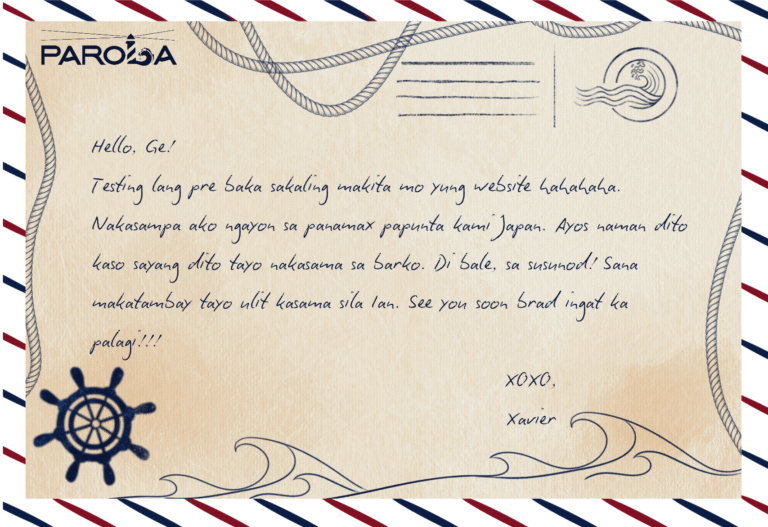 PAROLA
Hello, Ge!
Testing lang pre baka sakaling makita mo yung website hahahaha.
Nakasampa ako ngayon sa panamax papunta kami Japan. Ayos naman dito
kaso sayang dito tayo nakasama sa barko. Di bale, sa susunod! Sana
makatambay tayo ulit kasama sila Ian. See you soon brad ingat ka
palagi!!!
XOXO,
Xavier